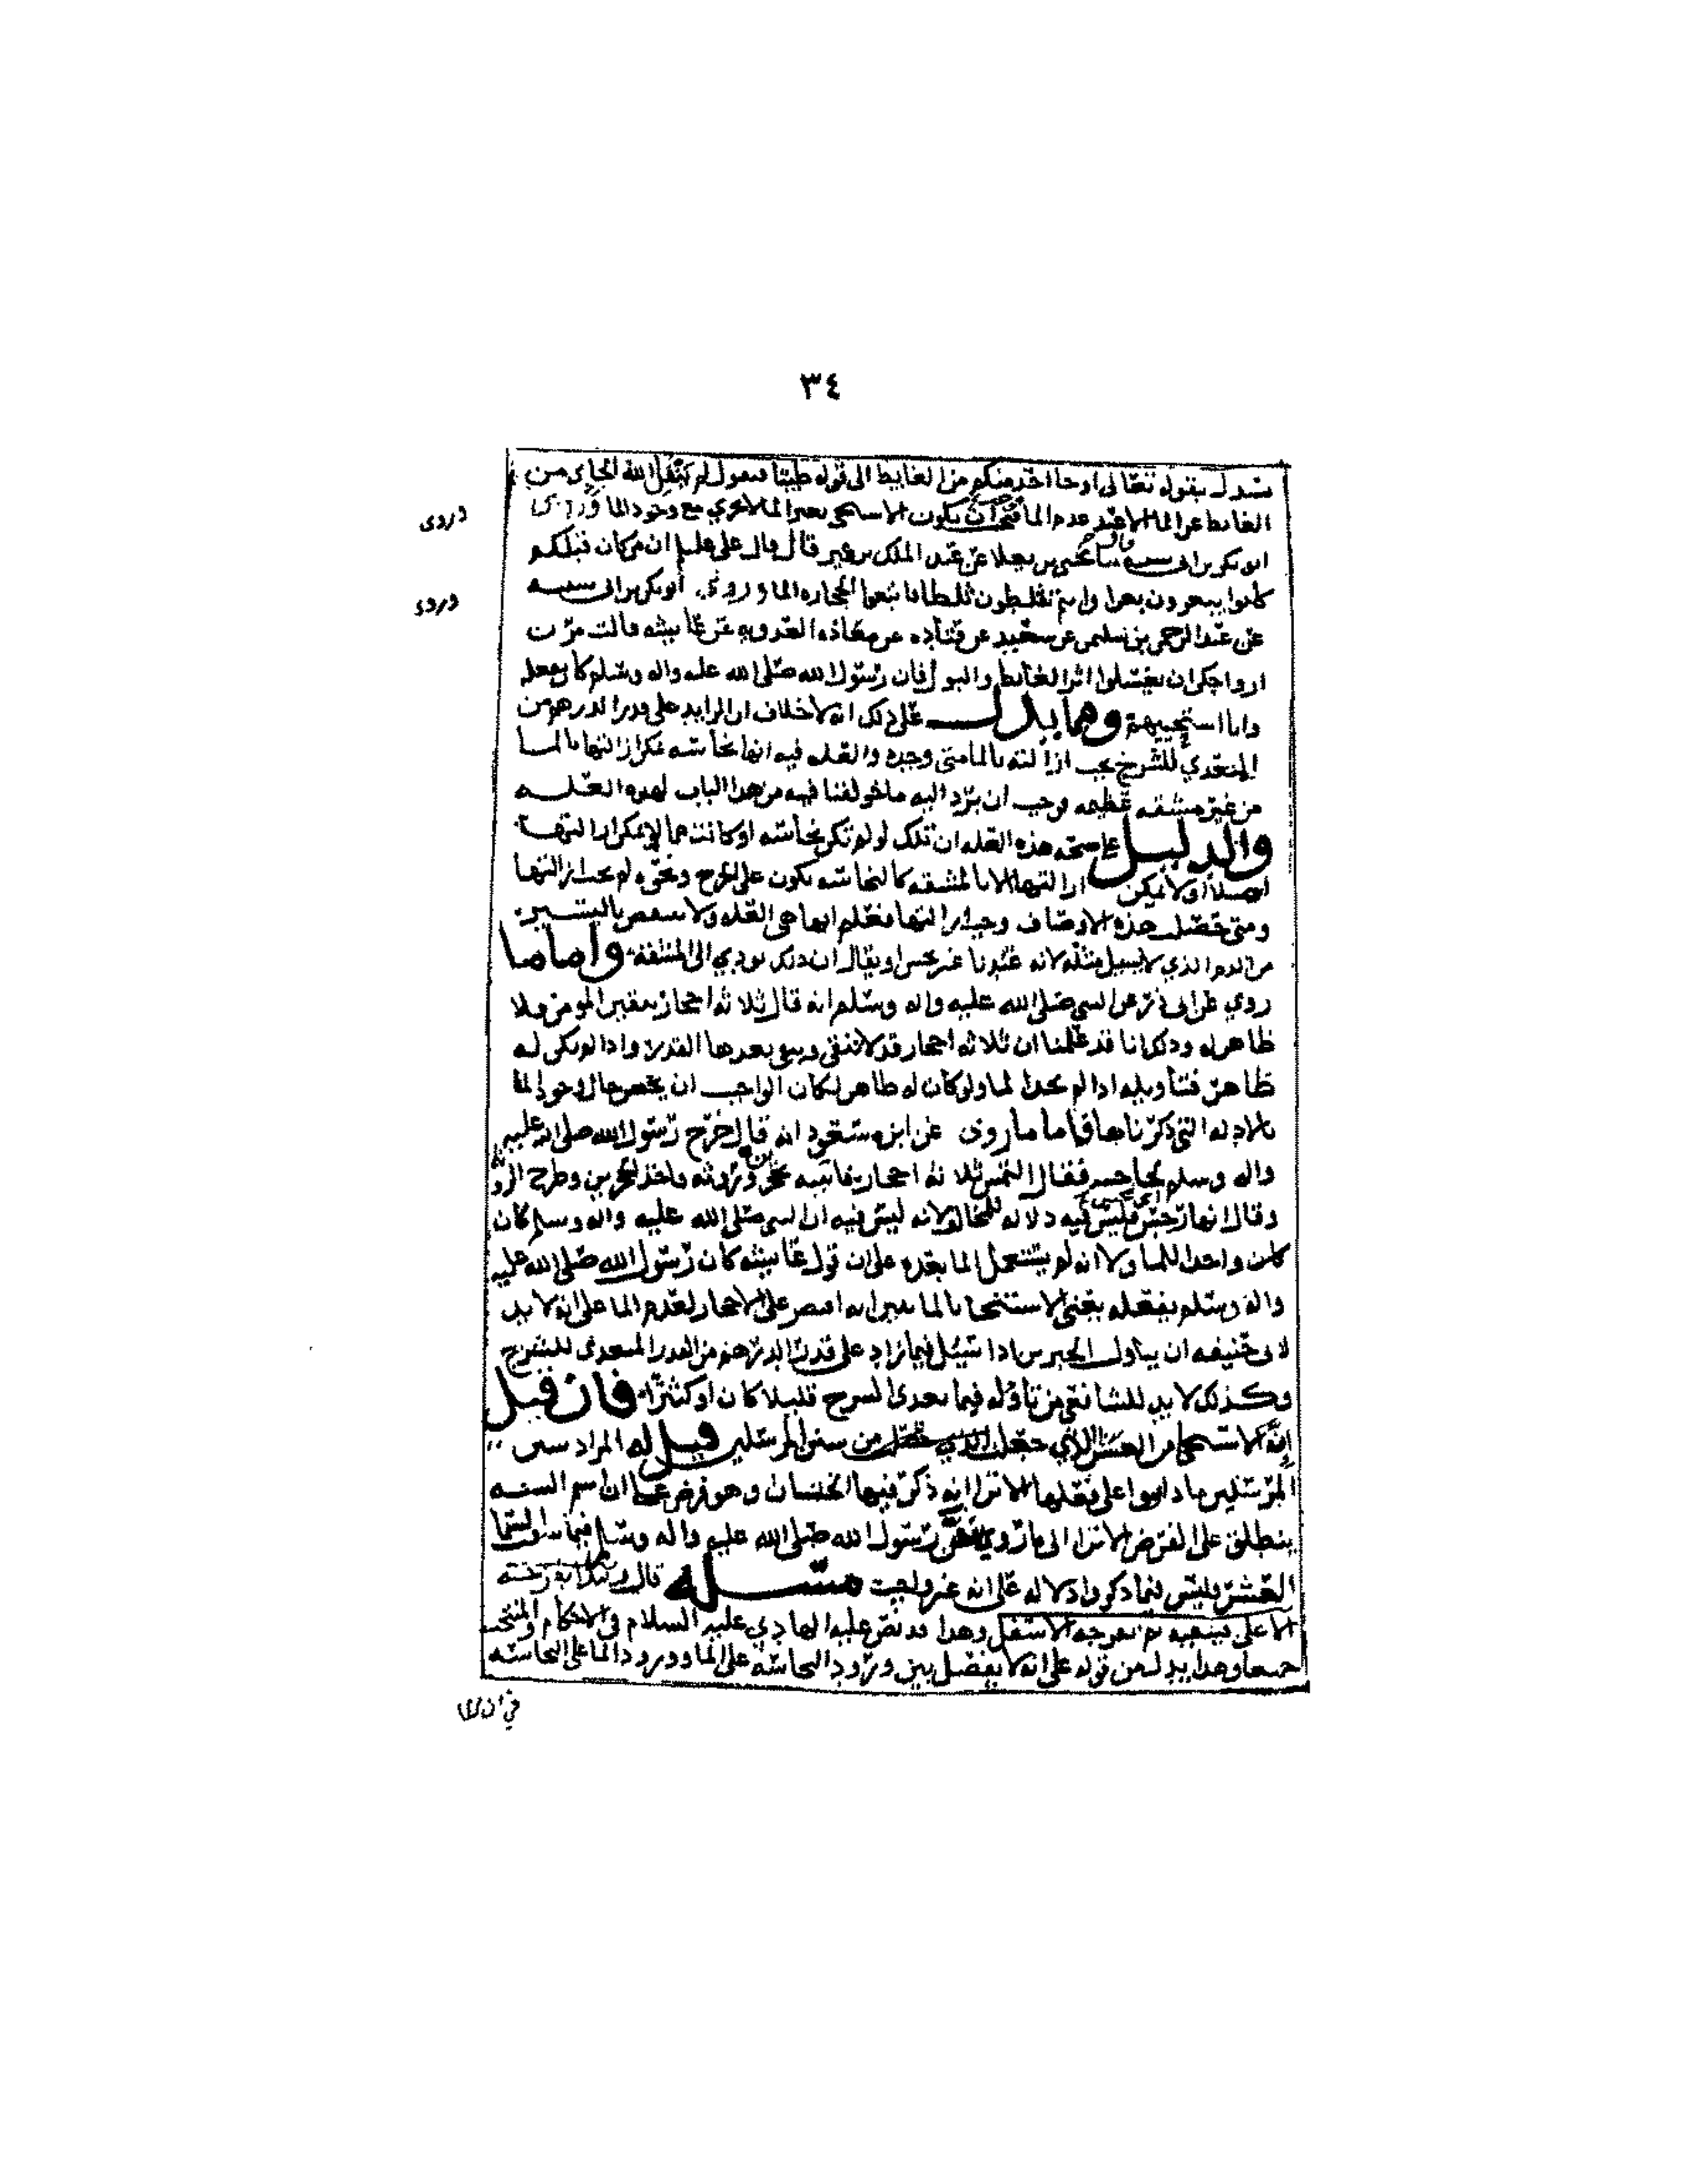 ٣٤
يستدل بقوله تعالى او جا احد منكم من الغايط الى قوله طيبا فيقول لم ينقل الله الجاي من
الغايط عن الما الا عند عدم الما يكون الاستنجى بغير الما لا يجزي مع وجود الما وروى
وروى
ابو بكر بن ابى شيبه عن يحيى بن يعلا عن عبد الملك بن عمير قال قال على عليلم ان من كان قبلكم
كانوا يبعرون بعرا وانتم تثلطون ثلطا فاتبعوا الحجاره الما وروى ابو بكر بن ابى شيبه
وروى
عن عبد الرحمن بن سليمن عن سعيد عن قتاده عن معاذه العدويه عن عايشه قالت مرن
ازواجكن ان يغسلوا اثر الغايط والبول فان رسول الله صلى الله عليه واله وسلم كان يفعله
وانا استحييهم ومما يدل على ذلك انه لا خلاف ان الزايد على قدر الدرهم من
المتعدي للشرج يجب ازالته بالما متى وجد والعله فيه انها نجاسه يمكن ازالتها بالما
من غير مشقه عظيمه فوجب ان يرد اليه ما خولفنا فيه من هذا الباب لهذه العله
والدليل على صحه هذه العله ان تلك لو لم تكن نجاسه او كانت مما لا يمكن ازالتها
اصلا او لا يمكن ازالتها الا بالمشقه كالنجاسه تكون على الجرح ونحوه لم يجب ازالتها
ومتى حصلت هذه الاوصاف وجب ازالتها فعلم انها هى العله ولا ينتقض باليسير
من الدم الذي لا يسيل مثله لانه عندنا غير نجس او يقال ان ذلك يودي الى المشقه واما ما
روي عن ابى ذر عن النبي صلى الله عليه واله وسلم انه قال ثلاثه احجار ينقين المومن فلا
ظاهر له وذلك انا قد علمنا ان ثلاثه احجار قد لا تنقى ويبقى بعدها القذر واذا لم يكن له
ظاهر فتاويله اذا لم يجد الما ولو كان له ظاهر لكان الواجب ان يخص حال وجود الما
بالادله التي ذكرناها فاما ما روى عن ابن مسعود انه قال خرج رسول الله صلى الله عليه
واله وسلم لحاجته فقال التمس ثلاثه احجار فاتيته بحجرين وروثه فاخذ الحجرين وطرح الروث
وقال انها رجس فليس فيه دلاله للمخالف لانه ليس فيه ان النبي صلى الله عليه واله وسلم كان
كان واجدا للما ولا انه لم يستعمل الما بعده على ان قول عايشه كان رسول الله صلى الله عليه
واله وسلم يفعله يعنى الاستنجا بالما يبين انه اقتصر على الاحجار لعدم الما على انه لا بد
لابى حنيفه ان يتاول الخبرين اذا سيل فيما زاد على قدر الدرهم من القذر المتعدى للشرج
وكذلك لا بد للشافعى من تاوله فيما تعدى الشرج قليلا كان او كثيرا فان قيل
ان الاستنجا من العشر الذي جعلت من سنن المرسلين قيل له المراد بسنن
المرسلين ما داوموا على فعلها الا ترا انه ذكر فيها الختان وهو فرض على ان اسم السنه
ينطلق على الفرض الا ترا الى ما روي عن رسول الله صلى الله عليه واله وسلم فيما سقت السما
العشر وليس فيما ذكروا دلاله على انه غير واجب مسله قال
الاعلى ثم بفرجه الاسفل وهذا قد نص عليه الهادي عليه السلام فى الاحكام والمنتخب
جميعا وهذا يدل من قوله على انه لا يفصل بين ورود النجاسه على الما وورود الما على النجاسه